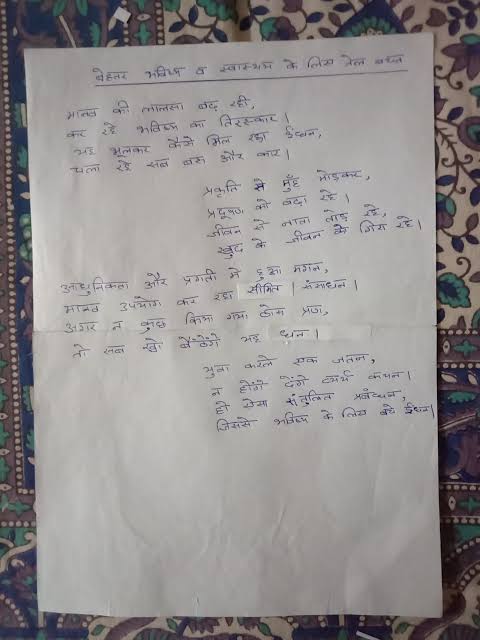 बेहतर भविष्य व स्वास्थय के लिए तेल बचत
मानव की लालसा बढ़ रही,
कर रहे भविष्य का तिरस्कार।
यह भूलकर कैसे मिल रहा ईंधन,
चला रहे सब बस और कार।
प्रकृति से मुँह मोड़कर,
प्रदूषण को बढ़ा रहे।
जीवन से नाता तोड़ रहे,
खुद के जीवन को गिरा रहे।
आधुनिकता और प्रगती में हुआ मगन,
मानव उपयोग कर रहा सीमित संसाधन।
अगर न कुछ किया गया ठोस प्रण,
तो सब खो बैठेंगे यह धन।
युवा करले एक जतन,
न होंगे देंगे व्यर्थ कथन।
हो ऐसा संतुलित प्रबंधन,
जिससे भविष्य के लिए बचे ईंधन।